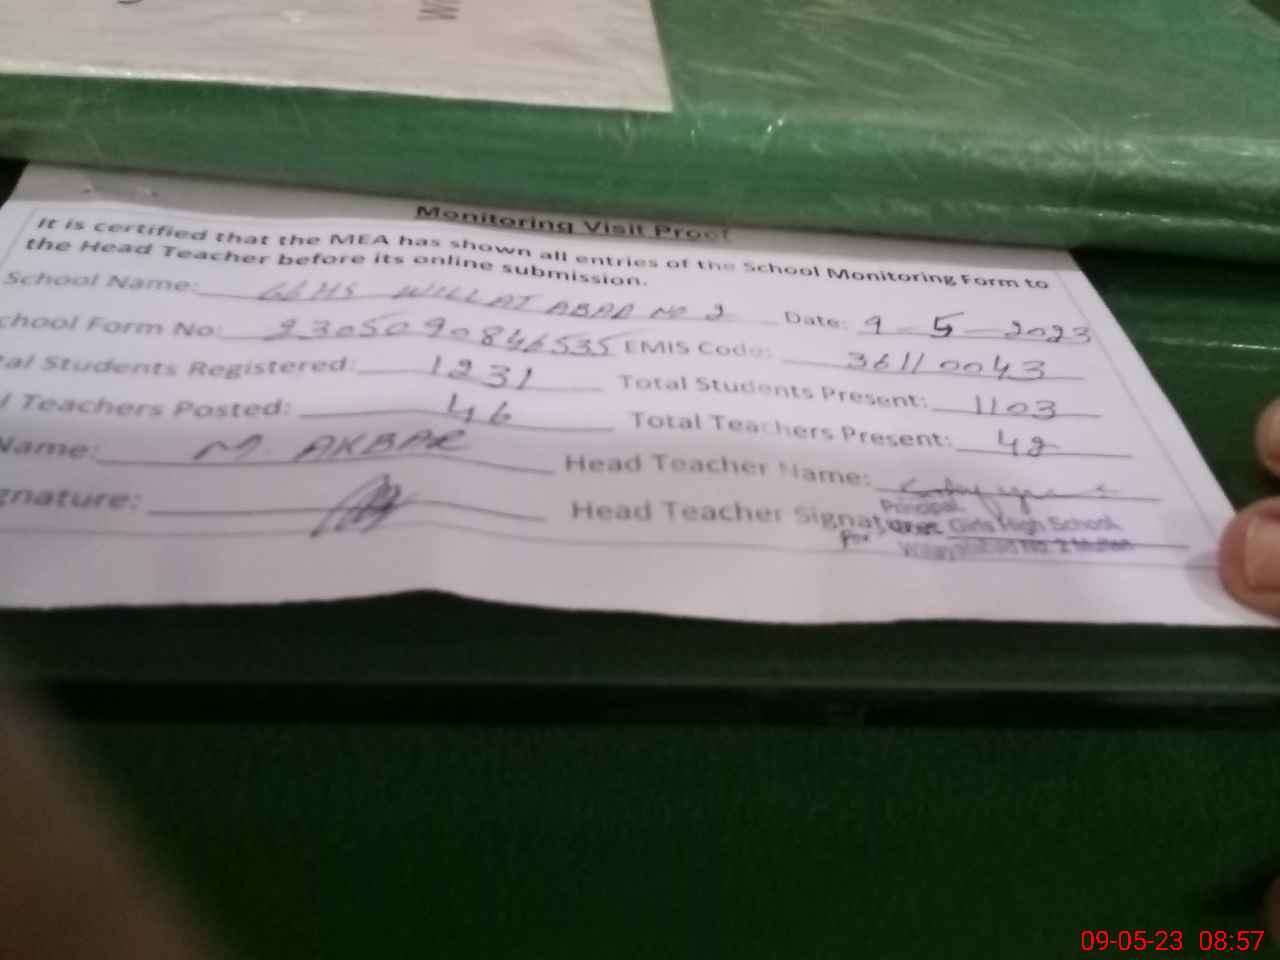 Wi
Monitoring Visit Proof
It is certified that the MEA has shown all entries of the School Monitoring Form to
the Head Teacher before its online submission.
School Name: GGHS WILLAT ABAD NO 2 Date: 9-5-2023
chool Form No: 230509084 6535 EMIS Code: 36110043
tal Students Registered: 1231 Total Students Present: 1103
l Teachers Posted: 46 Total Teachers Present: 42
Name: M. AKBAR Head Teacher Name:
gnature: Head Teacher Signature:
Principal
Girls High School
No. 2 Multan
09-05-23 08:57